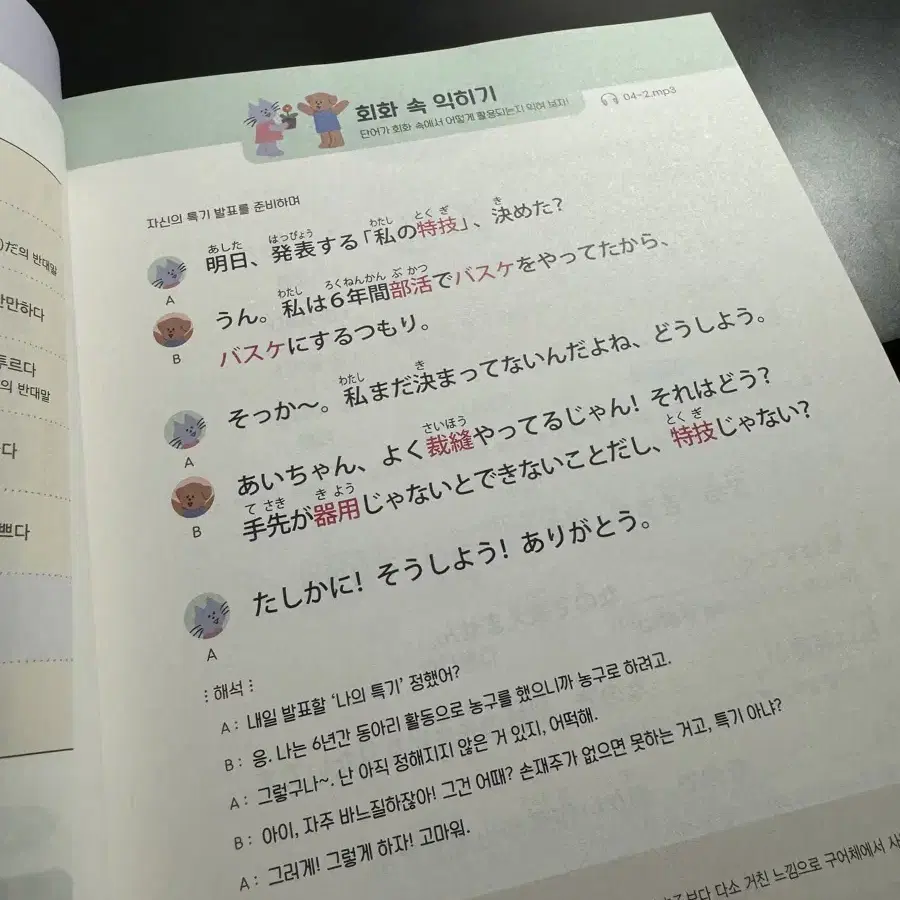 회화 속 익히기
단어가 회화 속에서 어떻게 활용되는지 익혀 보자!
04-2.mp3
자신의 특기 발표를 준비하며
あした はっぴょう わたし とくぎ き
明日、発表する「私の特技」、決めた?
A
わたし ろくねんかん ぶかつ
うん。私は6年間部活でバスケをやってたから、
バスケにするつもり。
B
わたし き
そっか〜。私まだ決まってないんだよね、どうしよう。
A
さいほう
あいちゃん、よく裁縫やってるじゃん! それはどう?
てさき きよう とくぎ
手先が器用じゃないとできないことだし、特技じゃない?
B
たしかに! そうしよう! ありがとう。
A
해석
A : 내일 발표할 ‘나의 특기’ 정했어?
B : 응. 나는 6년간 동아리 활동으로 농구를 했으니까 농구로 하려고.
A : 그렇구나~. 난 아직 정해지지 않은 거 있지, 어떡해.
B : 아이, 자주 바느질하잖아! 그건 어때? 손재주가 없으면 못하는 거고, 특기 아냐?
A : 그러게! 그렇게 하자! 고마워.
보다 다소 거친 느낌으로 구어체에서
だ의 반대말
만하다
투르다
의 반대말
다
쁘다